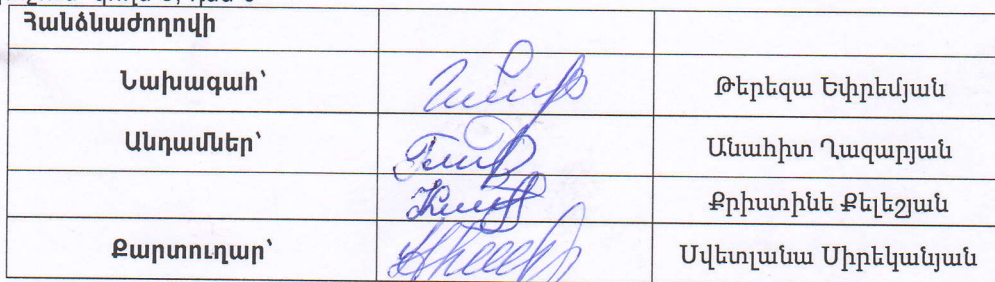 Հանձնաժողովի
Նախագահ՝ Թերեզա Եփրեմյան
Անդամներ՝ Անահիտ Ղազարյան
Քրիստինե Քելեշյան
Քարտուղար՝ Սվետլանա Միրեկանյան